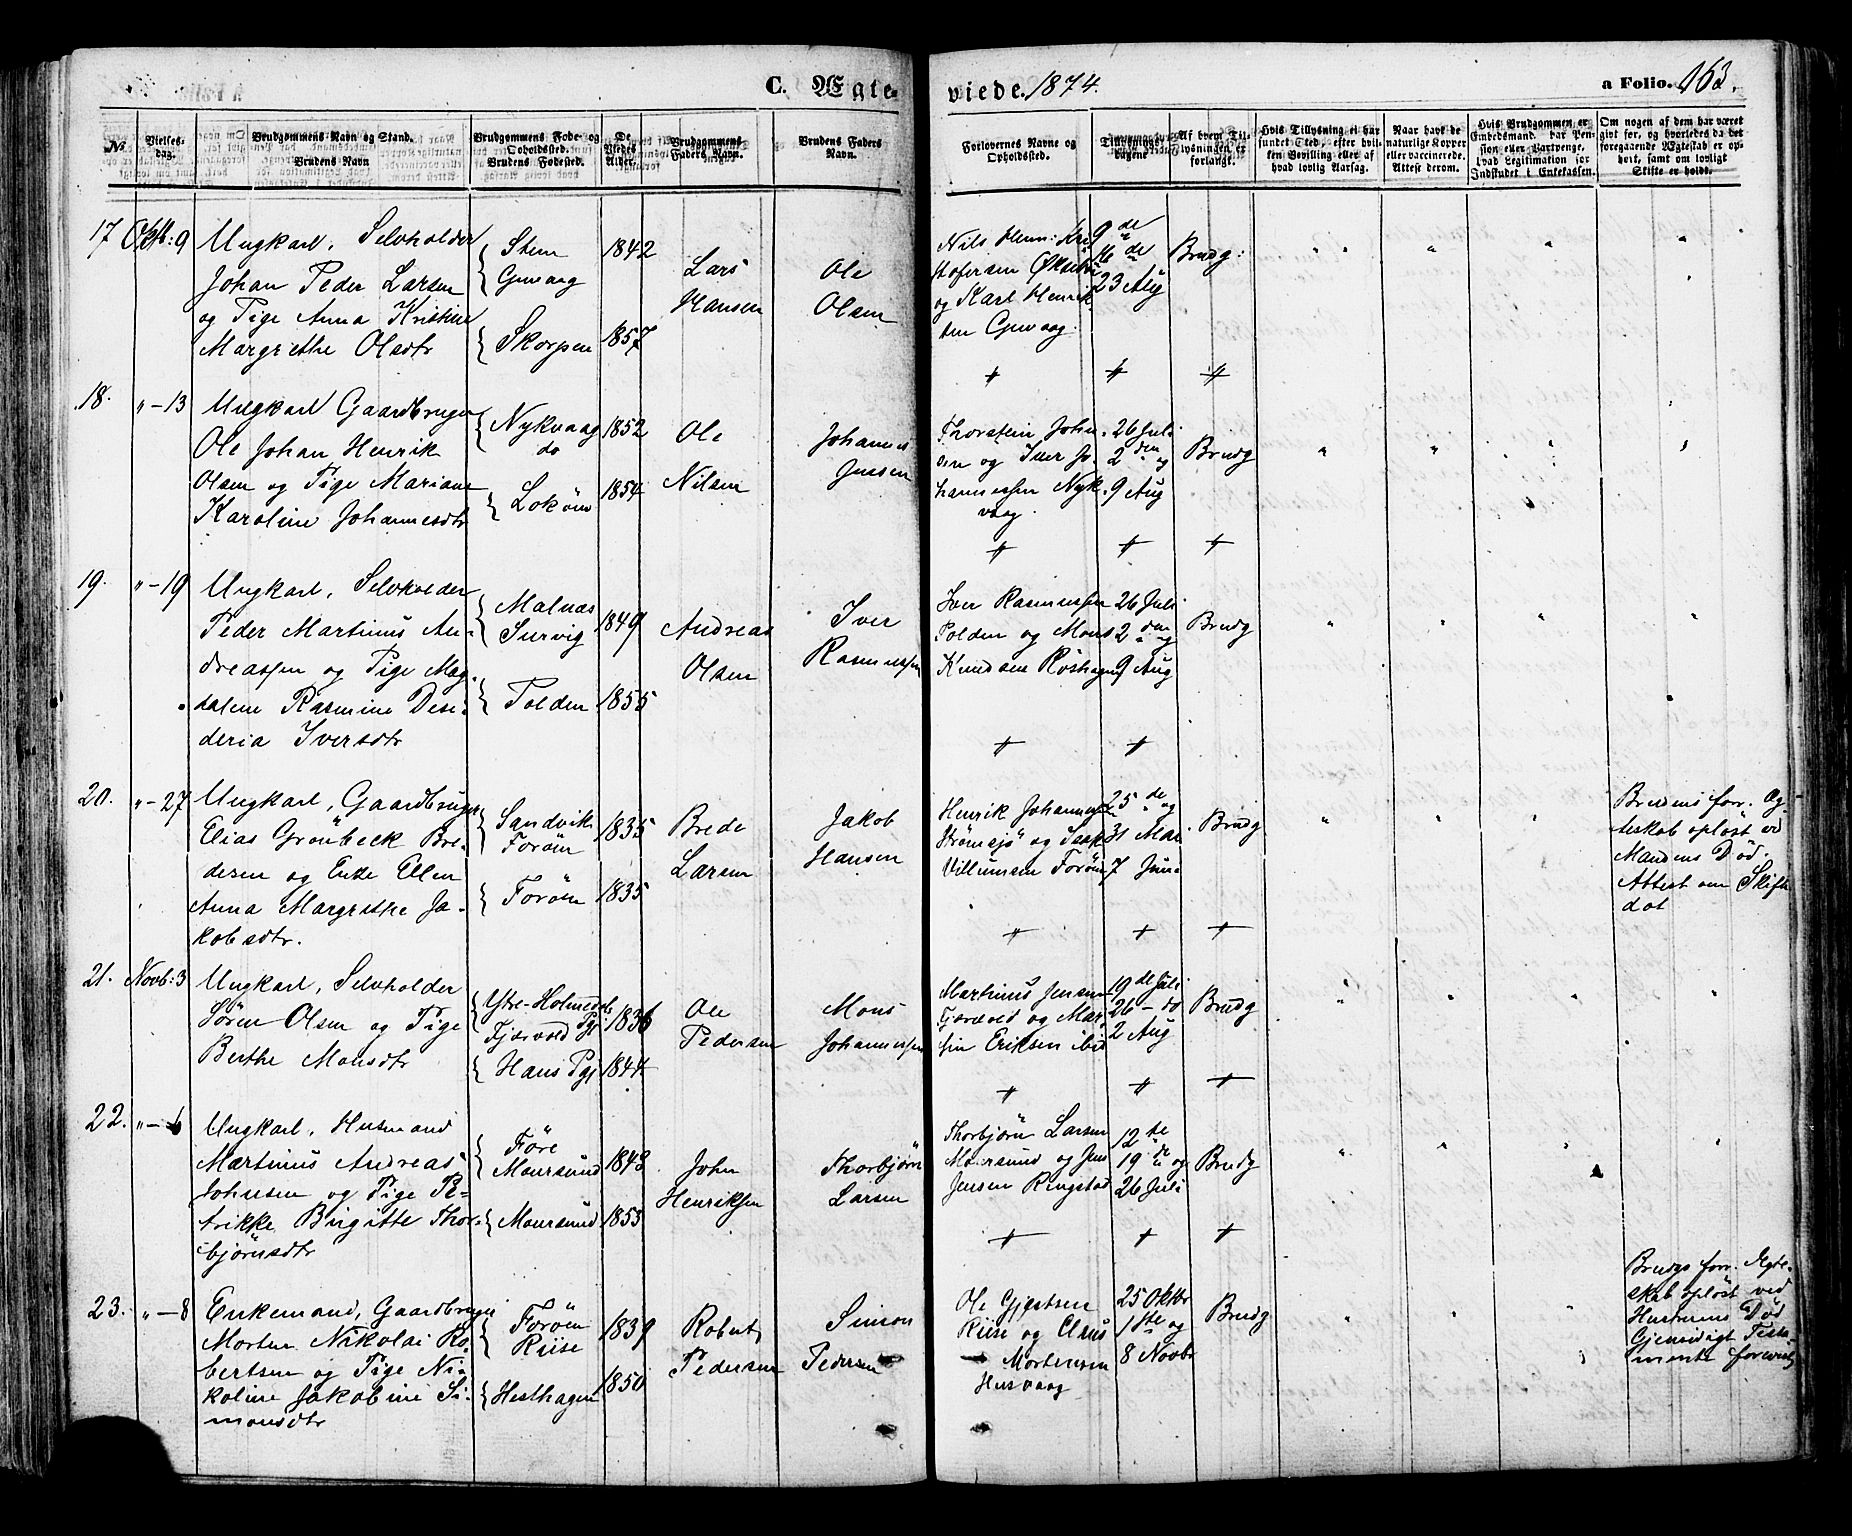 C. Ægte-
viede. 1874.
a Folio. 163.
No.
Vielses-
dag.
Brudgommens Navn og Stand.
Brudens Navn
Brudgommens Føde- og
Opholdssted.
Brudens Fødested.
De
Viedes
Alder.
Brudgommens
Faders Navn.
Brudens Faders
Navn.
Forlovernes Navne og
Opholdssted.
Tillysnings-
dagene
Af hvem Til-
lysningen er
forlangt.
Hvis Tillysning ei har
fundet Sted, efter hvil-
ken Bevilling eller af
hvad lovlig Aarsag.
Naar havt de
naturlige Kopper
eller vaccinerede.
Attest derom.
Hvis Brudgommen er
Embedsmand, har Pen-
sion eller Vartpenge,
hvad Legitimation for
Indskudet i Enkekassen.
Om nogen af dem har været
givt før, og hvorledes da det
foregaaende Ægteskab er op-
hørt, samt om lovligt
Skifte er holdt.
17 Oktb: 9
Ungkarl, Selvholder
Johan Peder Larsen
og Pige Anna Kristine
Margrethe Olsdtr
Stene
Skorpen
1842
1857
Lars
Hansen
Ole
Olsen
Nils Henr: Kri
stofersen
og Karl Henrik
sen
9 de
16 de
23 Aug
Brudg:
18. " - 13
Ungkarl Gaardbruger
Ole Johan Henrik
Olsen og Pige Mariane
Karoline Johannesdtr
Nykvaag
do
Lokøen
1852
1854
Ole
Nilsen
Johannes
Jenssen
Thorstein John-
sen og Iver Jo-
hannessen Nyk-
vaag
26 Juli
2 den og
9 Aug
Brudg
19. " - 19
Ungkarl, Selvholder
Peder Martinus An-
dreassen og Pige Mag-
dalene Rasmine Desi-
deria Iversdtr
Malnæs
Polden
1849
1855
Andreas
Olsen
Iver
Rasmussen
Iver Rasmussen
Polden og Mons
Knudsen Røshagen
26 Juli
2 den og
9 Aug
Brudg
20. " - 27
Ungkarl, Gaardbruger
Elias Grönbeck Bre-
desen og Enke Ellen
Anna Margrethe Ja-
kobsdtr.
Sandvik
Forøen
Forøen
1835
1835
Brede
Larsen
Jakob
Hansen
Henrik Johannessen
Strømsjø og Isak
Villumsen Forøen
25 de og
31 Mai
7 Juni
Brudg
Brudens forr. Æg
teskab opløst ved
Mandens Død.
Attest om Skifte
dat
21. Novb: 3
Ungkarl, Selvholder
Sören Olsen og Pige
Berthe Monsdtr
Ytre-Holmedals
Fjærvold Pgj
Haus Pgj
1836
1844
Ole
Pedersen
Mons
Johannessen
Martinus Jensen
Fjærvold og Mar-
tin Eriksen ibid
19 de Juli
26 - do
2 Aug
Brudg
22. " - 6
Ungkarl, Husmand
Martinus Andreas
Johnsen og Pige Pe-
trikke Birgitte Thor-
bjørnsdtr
Føre
Maursund
Maursund
1843
1853
John
Henriksen
Thorbjørn
Larsen
Thorbjørn Larsen
Maursund og Jens
Jensen Ringstad
12 te
19 de og
26 Juli
Brudg
23. " - 8
Enkemand, Gaardbruger
Morten Nikolai Ro-
bertsen og Pige Ni-
koline Jakobine Si-
monsdtr
Forøen
Riise
Hesthagen
1839
1850
Robert
Pedersen
Simon
Pedersen
Ole Gjertsen
Riise og Claus
Mortensen
Husvaag
25 Oktbr
1ste og
8 Novbr
Brudg
Brudgs forr. Ægte-
skab opløst ved
Hustruens Død
Gjensidigt Testa-
mente forevist